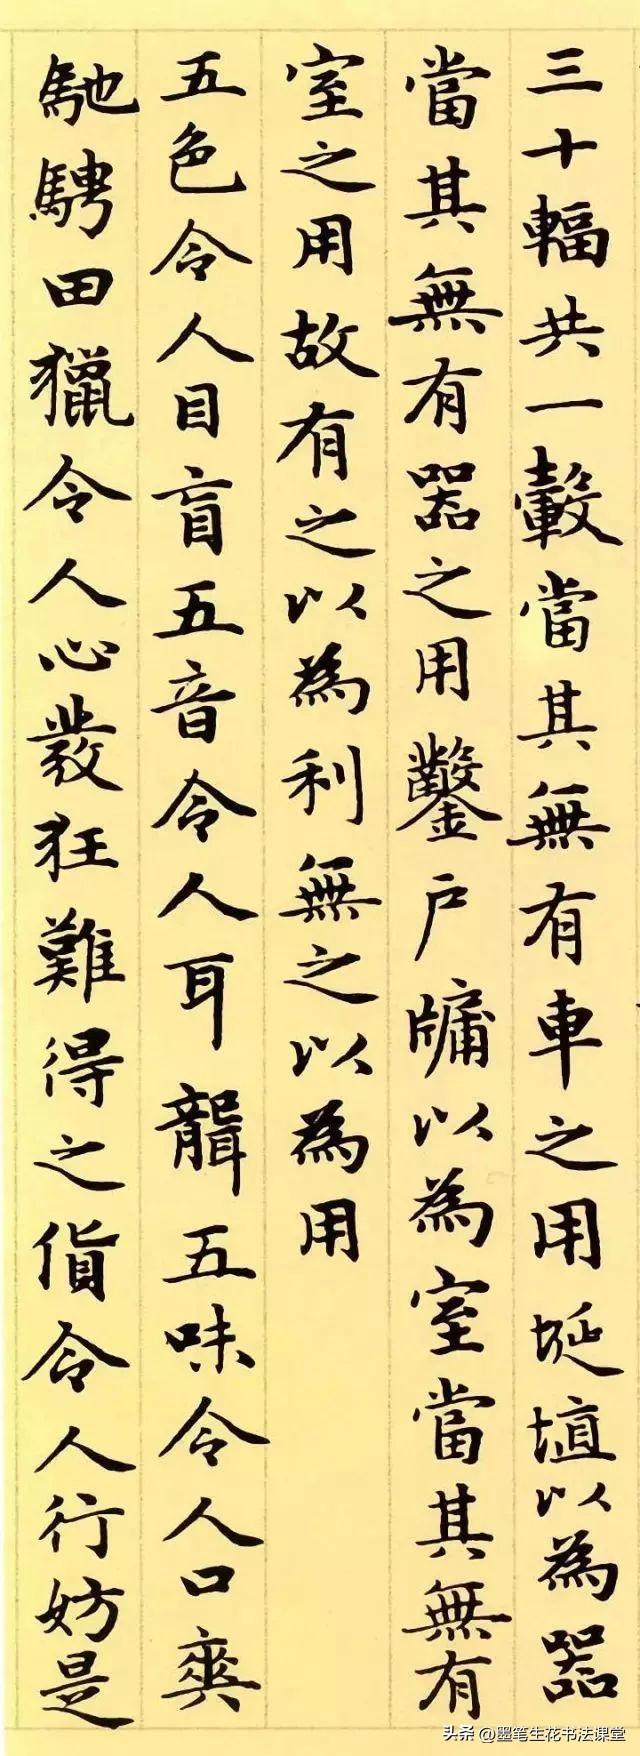 三十輻共一轂當其無有車之用埏埴以為器
當其無有器之用鑿戶牖以為室當其無有
室之用故有之以為利無之以為用
五色令人目盲五音令人耳聾五味令人口爽
馳騁田獵令人心發狂難得之貨令人行妨是
头条 @墨笔生花书法课堂